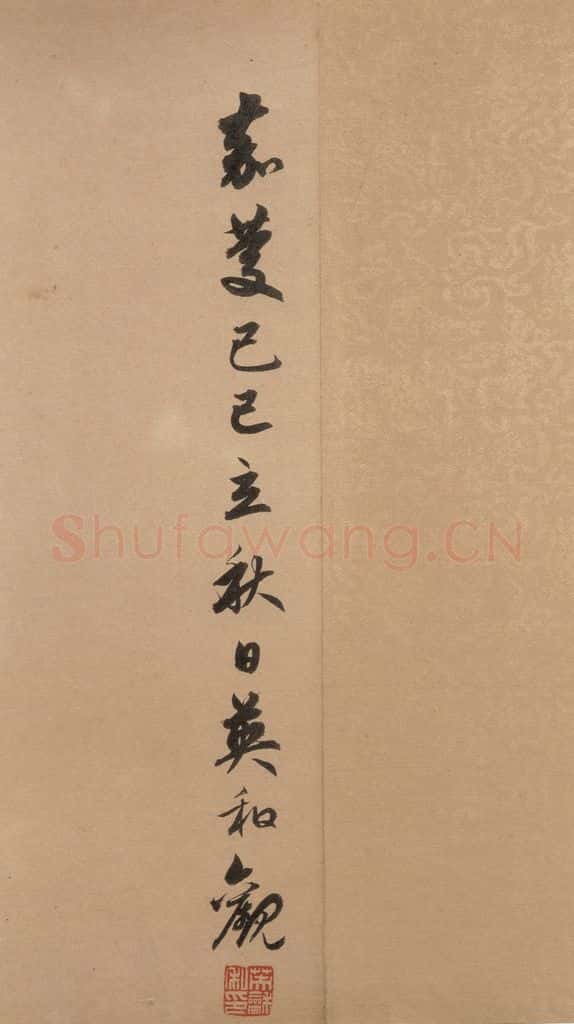 嘉慶己巳立秋日英和觀
英龢私印
Shufawang.CN